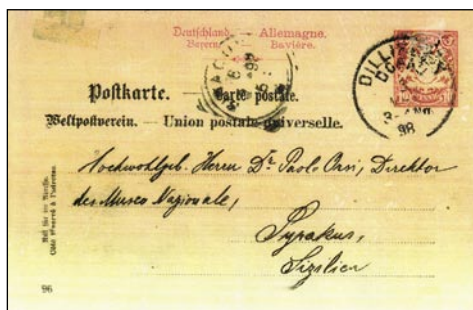 Deutschland. Allemagne.
Bayern. Bavière.
DILLINGEN
DONAU
98
Postkarte. — Carte postale.
Weltpostverein. — Union postale universelle.
Hochwohlgeb. Herrn Dr Paolo Orsi, Direktor
des Museo Nazionale,
Syrakus,
Sizilien
96